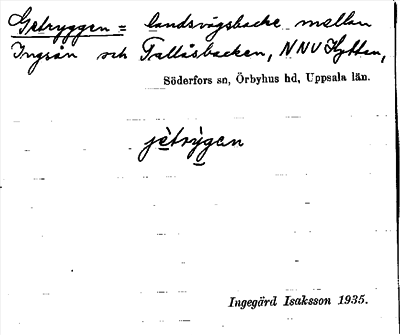 Getryggen = landsvägsbacke mellan
Ingsån och Tallåsbacken, NNV Hyttan,
Söderfors sn, Örbyhus hd, Uppsala län.
jètrỳgan
Ingegärd Isaksson 1935.